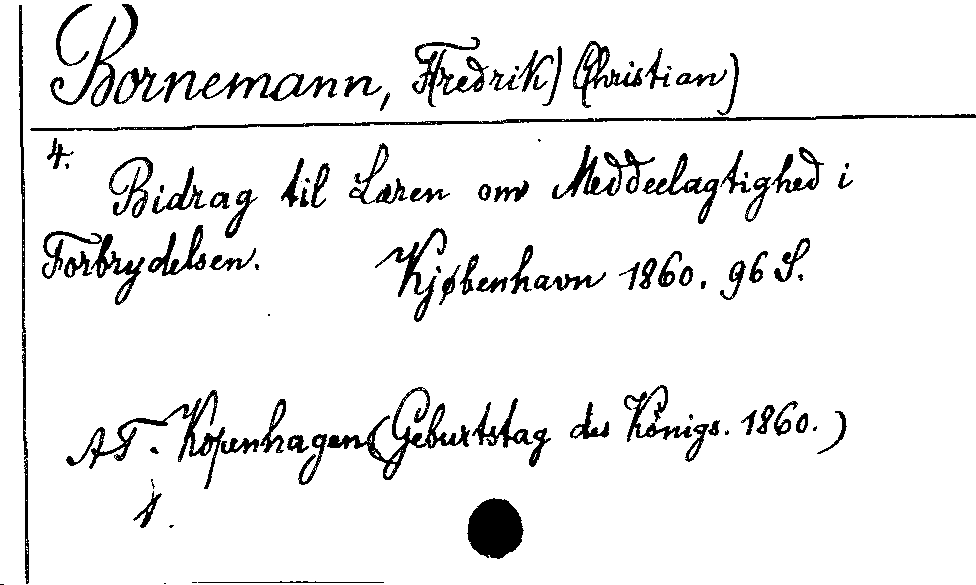 Bornemann, F(redrik) C(hristian)
4.
Bidrag til Læren om Meddeelagtighed i
Forbrydelsen. Kjøbenhavn 1860. 96 S.
AT. Kopenhagen (Geburtstag des Königs. 1860.)